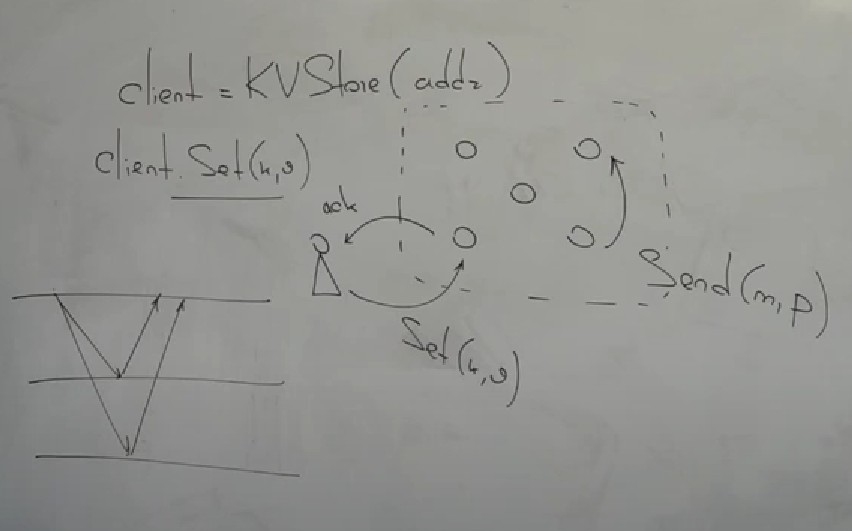 client = KVStore(addr)
client.Set(k,v)
ack
Send(m,p)
Set(k,v)